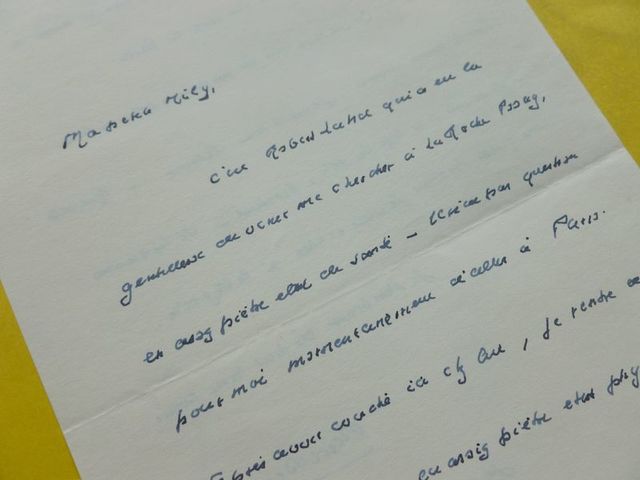 Ma chère Mily,
c'est Robert Lance qui a eu la
gentillesse de venir me chercher à La Roche Posay,
en assez piètre état de santé – Il n'est pas question
pour moi momentanément d'aller à Paris.
Après avoir couché ici chez lui, je rentre
en assez piètre état